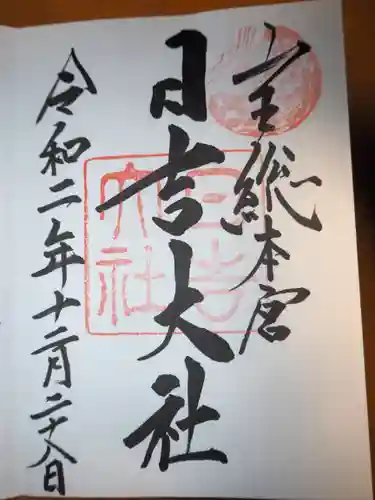 山王総本宮
日吉大社
令和二年十二月二十八日
日吉
大社